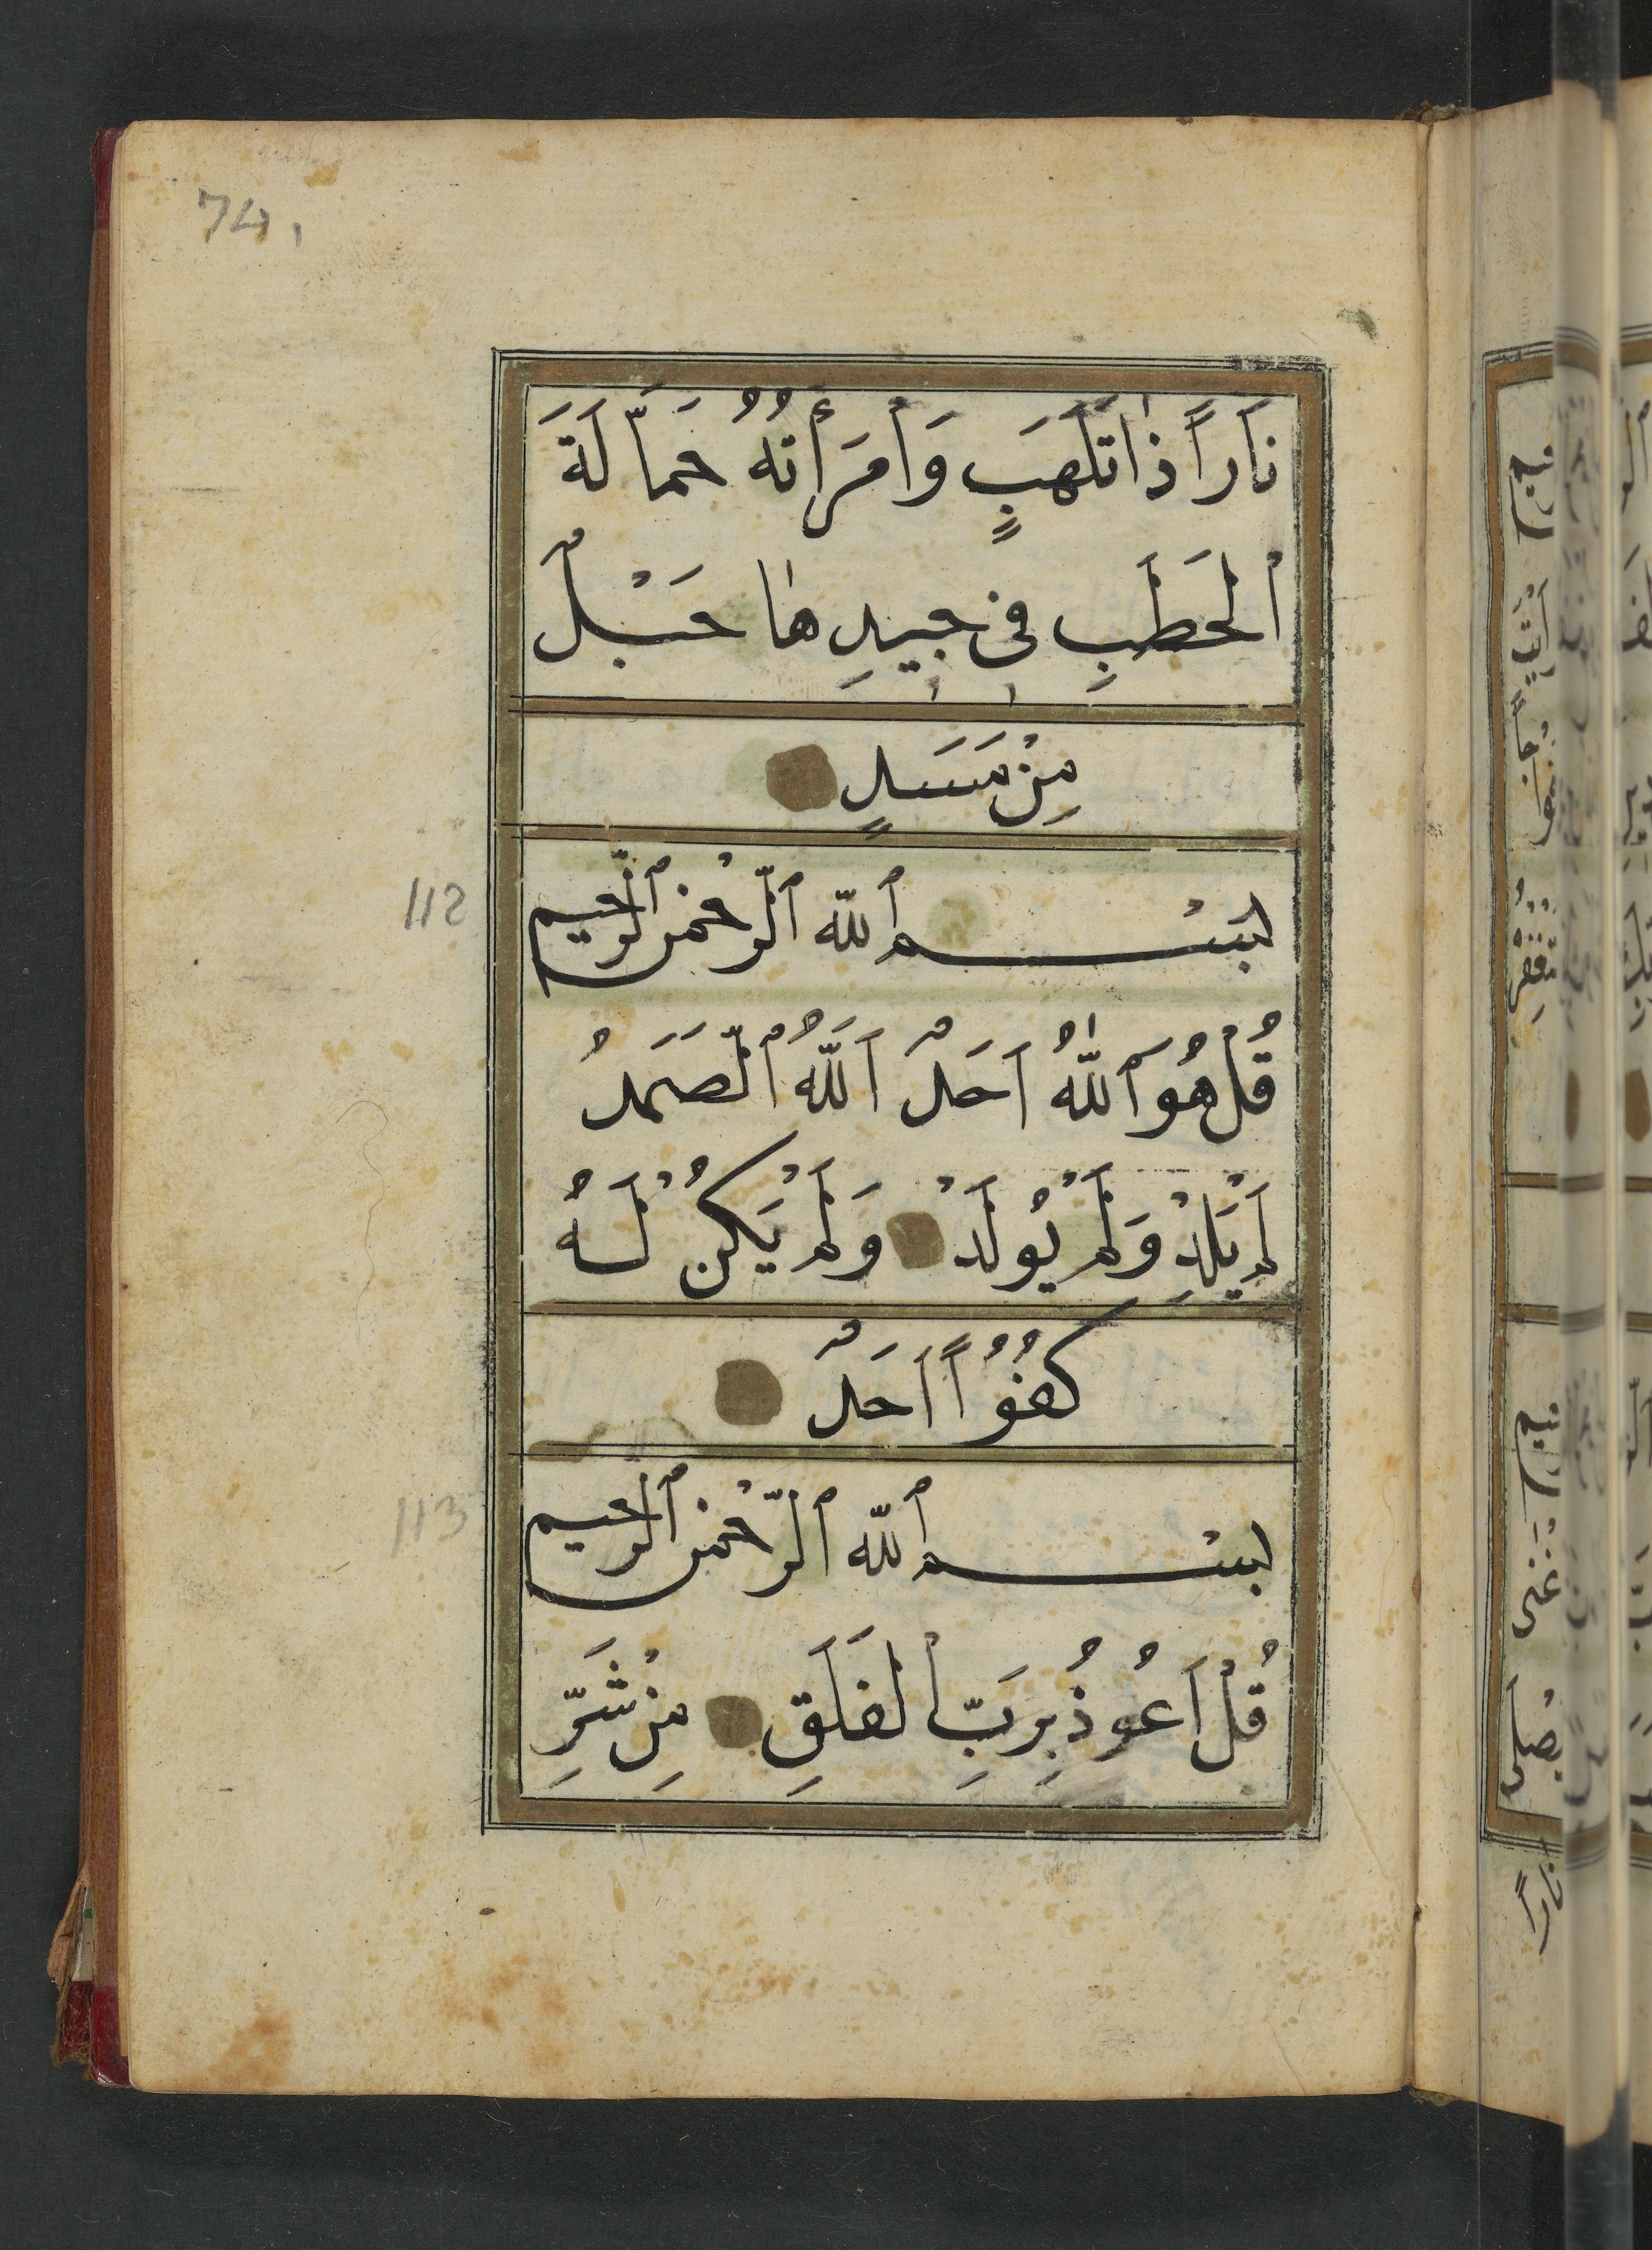 74
نَاراً ذَاتَ لَهَبٍ وَأمْرَأتُهُ حَمَّالَةَ
الْحَطَبِ فِى جِيدِهَا حَبْلٌ
مِنْ مَسَدٍ
112
بسْم ٱللّه ٱلرّحْمٰن ٱلرّحيم
قُلْ هُوَ ٱللّٰهُ اَحَدٌ اَللّٰهُ ٱلصَّمَدُ
لَمْ يَلِدْ وَلَمْ يُولَدْ وَلَمْ يَكُنْ لَهُ
كُفُوًا اَحَدٌ
113
بسْم ٱللّه ٱلرّحْمٰن ٱلرّحيم
قُلْ اَعُوذُ بِرَبِّ الْفَلَقِ مِنْ شَرِّ
نَاراً